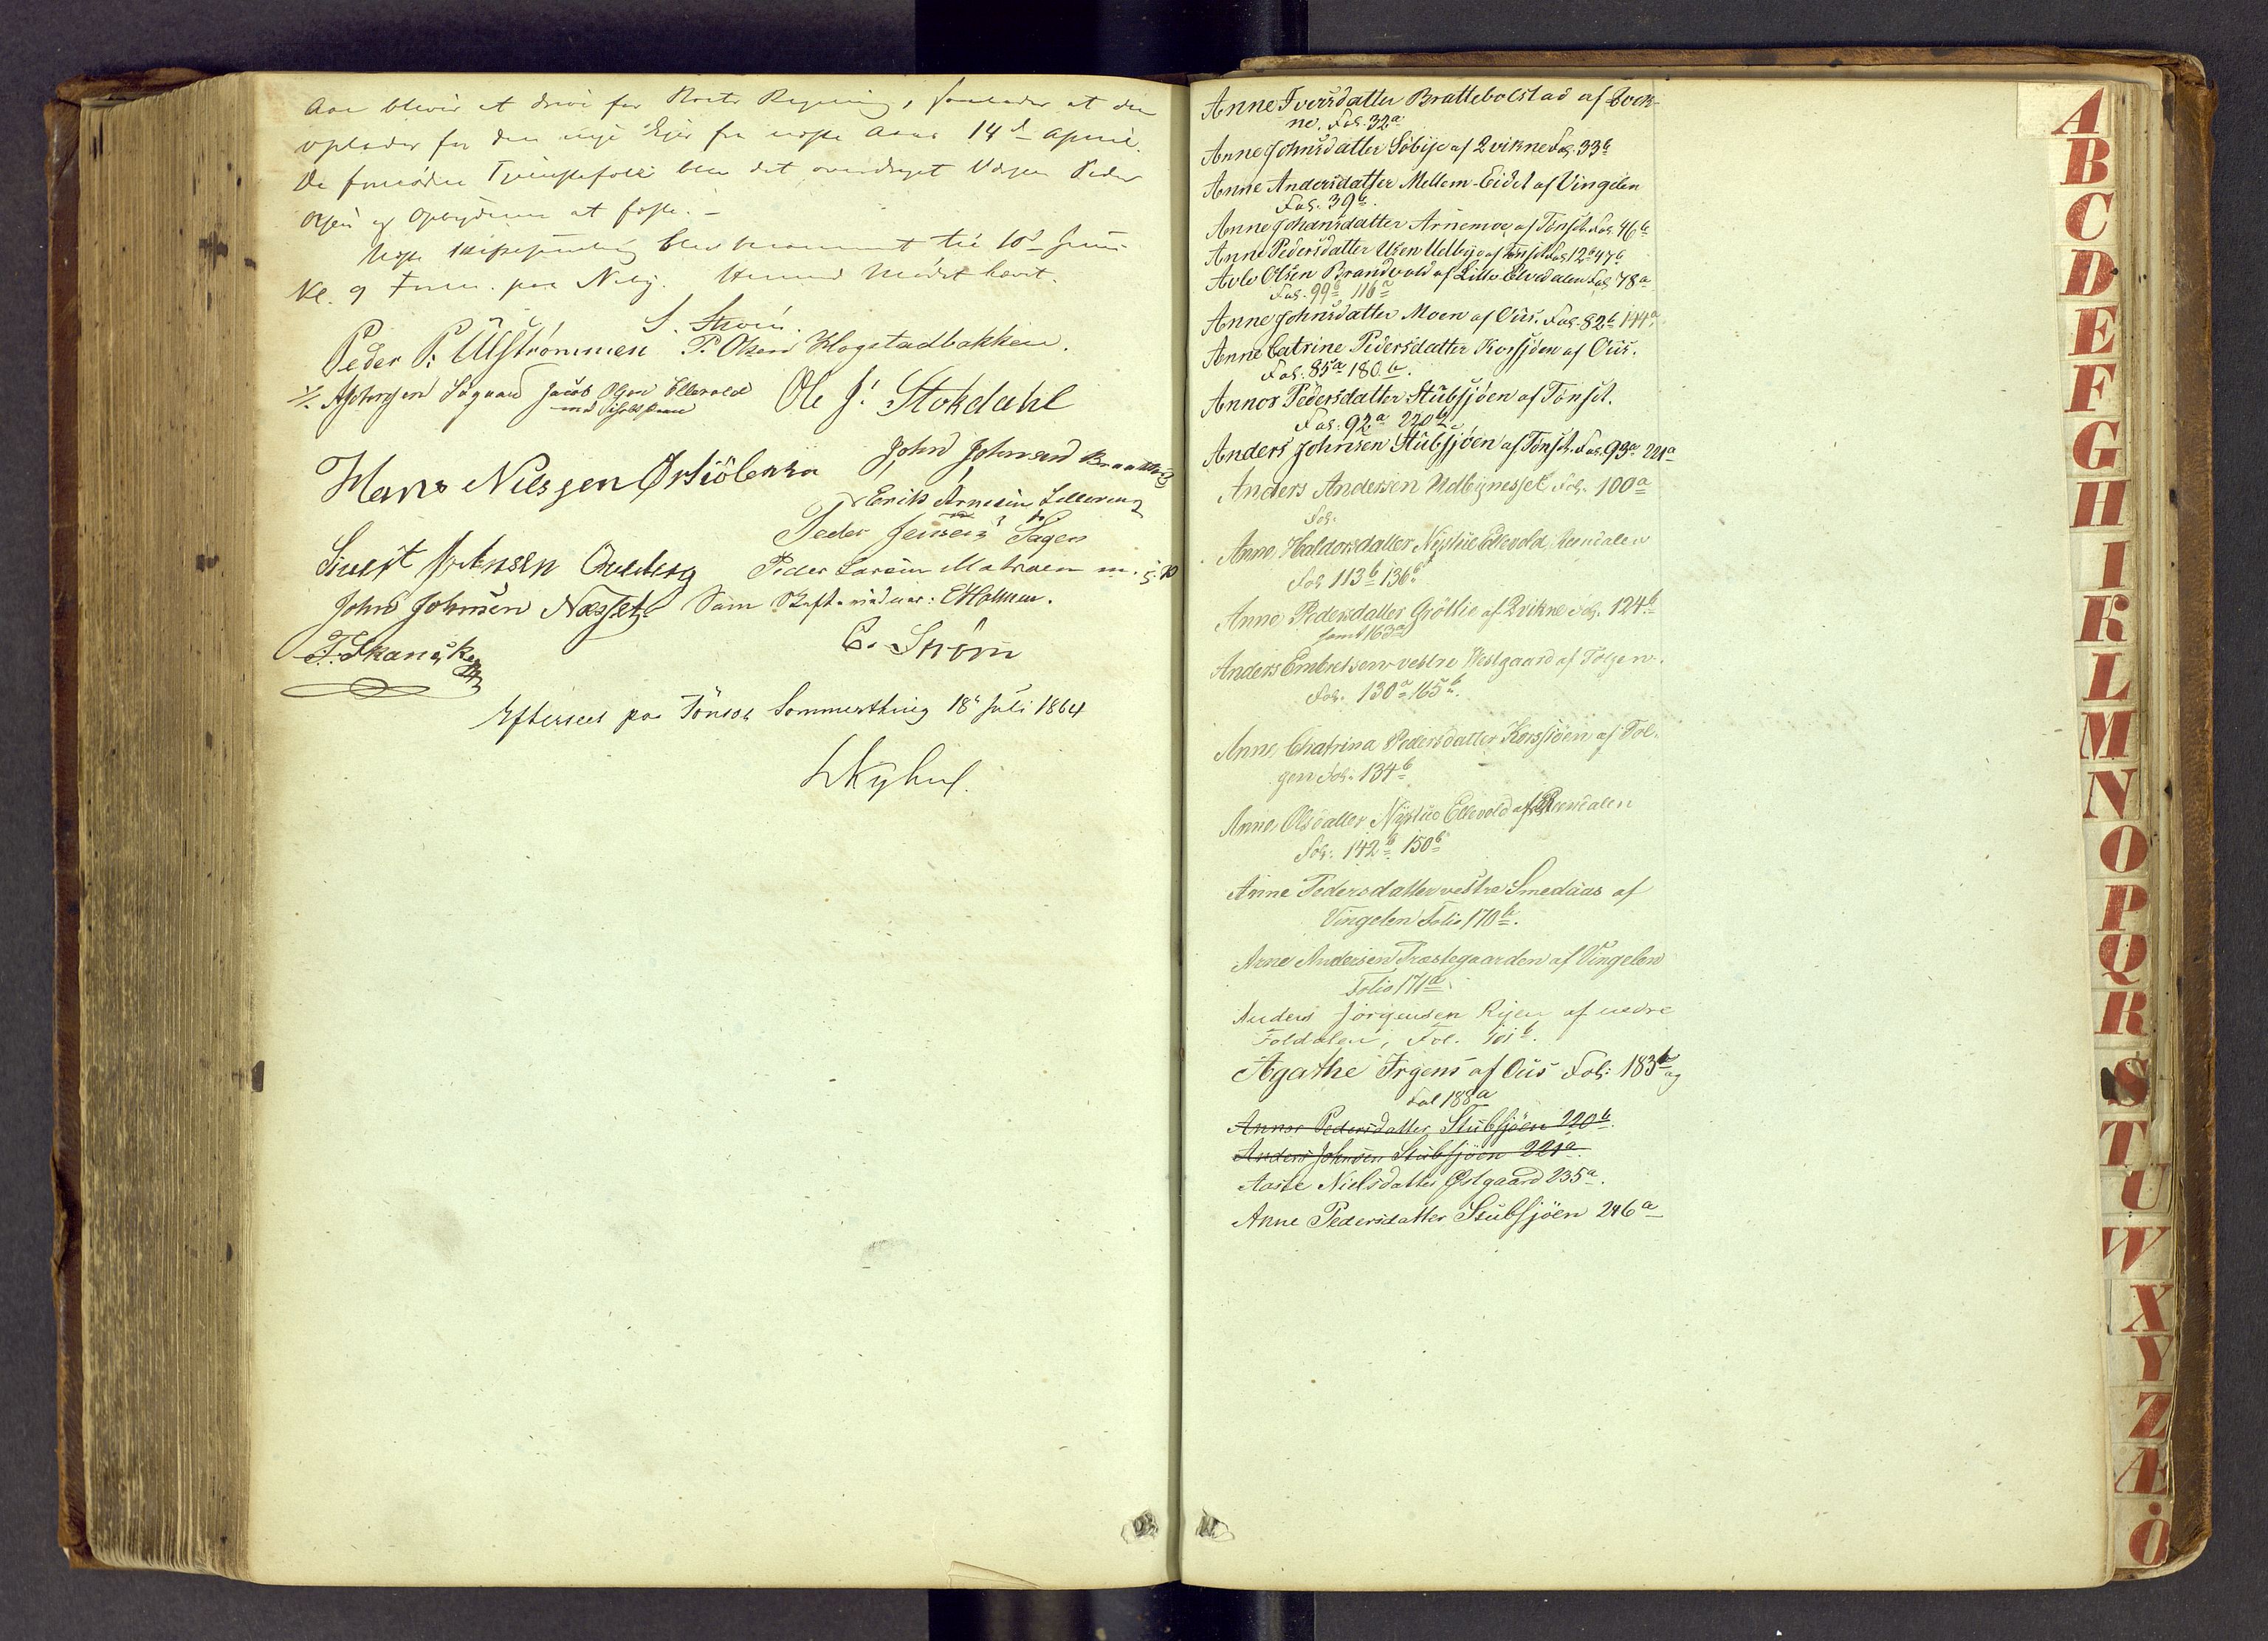 Aar bliver at drive for Boets Regning, saaledes at den
oplades for den nye Ejer fra næste Aars 14d April.
De fornødne Tjenestefolk blev det overdraget Værgen Peder
Olsen og Opbyderen at fæste. –
Næste Skiftesamling blev berammet til 10d Juni
Kl. 9 Form. paa Neby. Hermed Mødet hævet.
S. Strøm.
Peder P: Ulstrømmen P. Olsen Hogstadbakken.
Jacob Olsen Ellevold Ole J: Stokdahl
Hans Nilsgen
John Johnsen
Erik Arnesen
Peder Jensen Sagen
Sivert
Peder Larsen
John Johnsen Næsset Som Skifteskriver: EHolmen.
C. Strøm
F. Skancke
Eftersees paa Tönset Sommerthing 18d Juli 1864
Anne Iversdatter Brattebolstad af Qvik-
ne, Fol. 32a
Anne Johnsdatter Söbye af Qvikne Fol. 33b
Anne Andersdatter Mellem-Eidet af Vingelen
Fol. 39b.
Anne Johansdatter Arnemoe af Tönset. Fol. 46b
Anne Pedersdatter Uden Udbye af Tönset Fol 12a 47b
Avle Olsen Brandvold af Lille Elvedalen Fol. 78a
Fol. 99b 116a
Anne Johnsdatter Moen af Öus. Fol. 82b 144a
Anne Catrine Pedersdatter Korssjöen af Öus.
Fol. 85a 180b.
Annox Pedersdatter Stubsjöen af Tönset.
Fol: 92a 220b
Anders Johnsen Stubsjöen af Tönset. Fol. 93a 221a
Anders Andersen Udbynesset Fol. 100a
Fol.
Anne Haldorsdatter Nystue Ellevold, Reendalen
Fol. 113b 136b
Anne Pedersdatter Gröttie af Qvikne Fol. 124b
samt 163a
Anders Embretsen vestre Vestgaard af Tolgen.
Fol. 130a 165b.
Anne Chatrina Pedersdatter Korssjöen af Tol-
gen Fol. 134b
Anne Olsdatter Nystue Ellevold af Reendalen
Fol. 142b 150b
Anne Pedersdatter vestre Smedaas af
Vingelen Folio 170b.
Arne Andersen Præstegaarden af Vingelen
Folio 171a
Anders Jörgensen Rijen af nedre
Foldalen, Fol. 101b.
Agathe Irgens af Öus Fol: 183b og
Fol 188a
Annox Pedersdatter Stubsjöen 220b.
Anders Johnsen Stubsjöen 221a.
Aaste Nielsdatter Østgaard 235a.
Anne Pedersdatter Stubsjöen 246a
A
B
C
D
E
F
G
H
I
K
L
M
N
O
P
Q
R
S
T
U
W
X
Y
Z
Æ
Ö